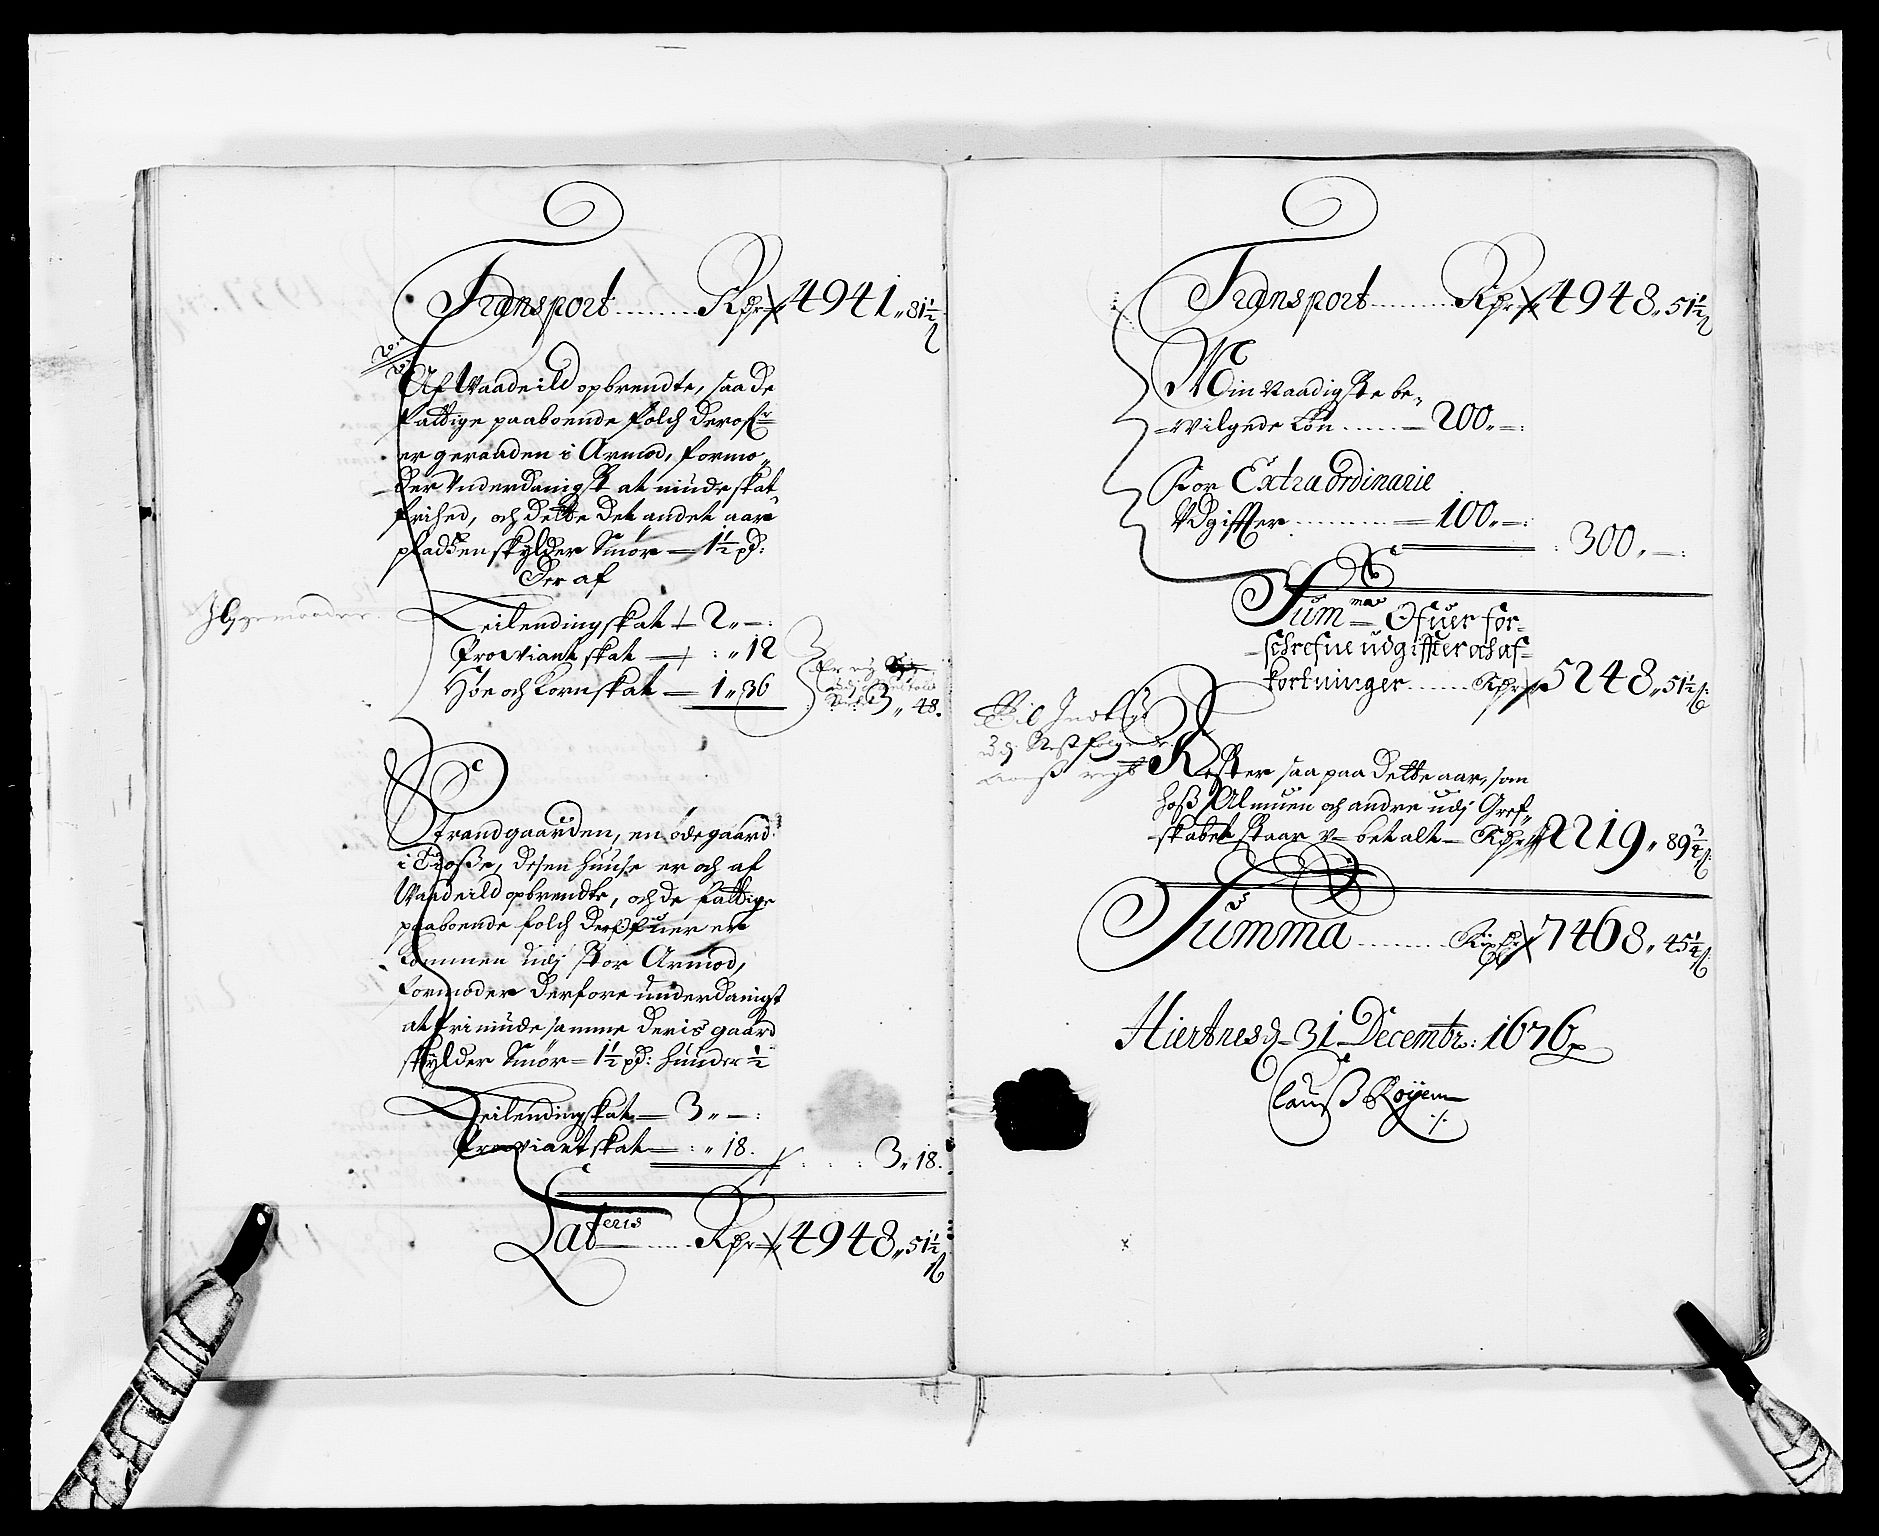 Transport ....... Rdr 4941 „ 81½
Af Vaadeild opbrendte, saa de
fattige paaboende folch derof:r
er geraaden i Armod, formo„
der Underdanigst at niude skat„
frihed, och dette det andet aar
pladsen skylder Smör — 1½ pd:
Der af
Leilendingskat — 2 „ — :
Proviantskat — : „ 12
Höe och Kornskat — 1 „ 36
3 „ 48.
Strandgaarden, en ödegaard
i Tiosße, desen huuse er och af
Vaadeild opbrendte, och de fattige
paaboende folch derofuer er
kommen udj stor Armod,
formoder derfore underdanigst
at fri niude samme deris gaard
skylder Smör — 1½ pd: hunder ½
Leilendingskat — 3 „ — :
Proviantskat — : „ 18.
3 „ 18.
Lateris ..... Rdr 4948 „ 51½ ß
Transport ........ Rdr 4948 „ 51½
Min Naadigste be„
vilgede Lön ..... — 200 „ — :
For Extraordinarie
Udgiffter ......... — 100 „ — :
300 „ — :
Summa Ofuer for„
schrefne udgiffter och af„
kortninger ...... Rdr 5248 „ 51½ ß:
Til
Rest folgende
Rester saa paa dette aar, som
hoß Almuen och andre udj Gref„
skabet staar u- betalt — Rdr 2219 „ 89¾ ß:
Summa ........ Rixdr 7468 „ 45¼ ß:
Hiertnes d. 31 Decembr: 1676
Clauß Röyem